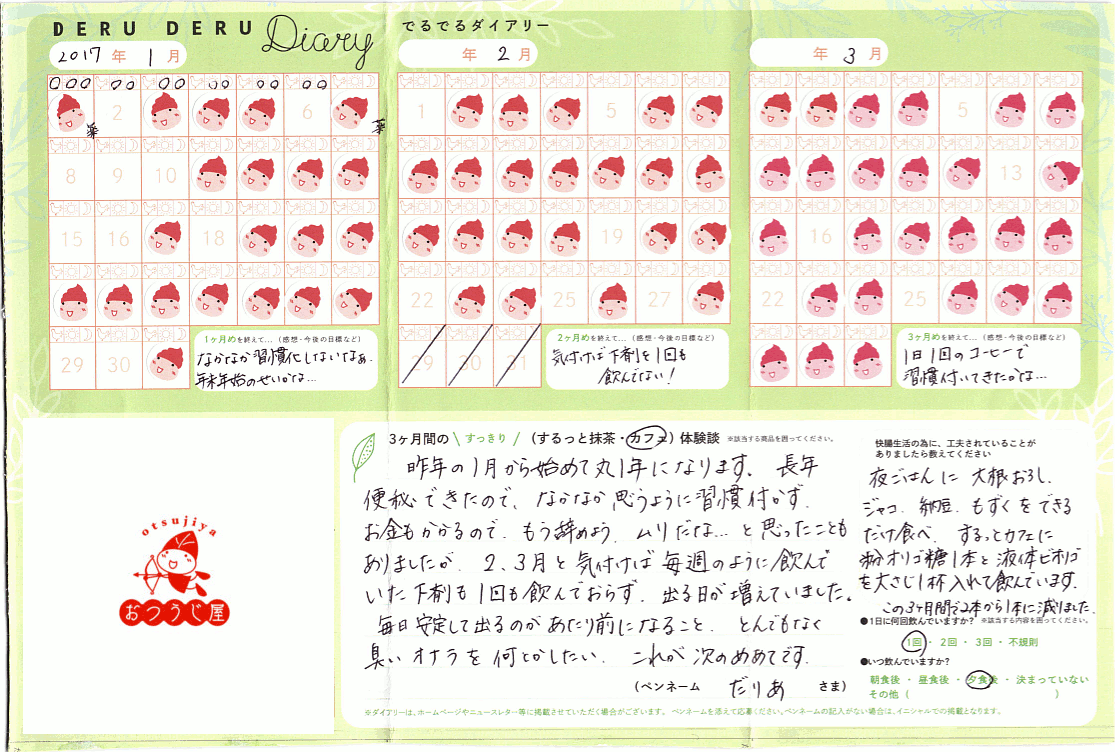 DERU DERU Diary でるでるダイアリー
2017年 1月
年 2月
年 3月
2 6
8 9 10
15 16 18
29 30
1 5
19
22 25 27
29 30 31
5
13
16
22 25
薬
薬
1ヶ月めを終えて...（感想・今後の目標など）
なかなか習慣化しないなぁ。
年末年始のせいかな…
2ヶ月めを終えて...（感想・今後の目標など）
気付けば下剤を1回も
飲んでない！
3ヶ月めを終えて...（感想・今後の目標など）
1日1回のコーヒーで
習慣付いてきたかな…
otsujiya
おつうじ屋
3ヶ月間の \ すっきり / （するっと抹茶・カフェ）体験談 ※該当する商品を囲ってください。
昨年の1月から始めて丸1年になります。長年
便秘できたので、なかなか思うように習慣付かず、
お金もかかるので、もう辞めよう、ムリだな…と思ったことも
ありましたが、2、3月と気付けば毎週のように飲んで
いた下剤も1回も飲んでおらず、出る日が増えていました。
毎日安定して出るのがあたり前になること、とんでもなく
臭いオナラを何とかしたい、これが次のめあてです。
（ペンネーム だりあ さま）
快腸生活の為に、工夫されていることが
ありましたら教えてください
夜ごはんに大根おろし、
ジャコ、納豆、もずくをできる
だけ食べ、するっとカフェに
粉オリゴ糖1本と液体ビオリゴ
を大さじ1杯入れて飲んでいます。
この3ヶ月間で2本から1本に減りました。
●1日に何回飲んでいますか？ ※該当する内容を囲ってください。
1回・2回・3回・不規則
●いつ飲んでいますか？
朝食後・昼食後・夕食後・決まっていない
その他（ ）
※ダイアリーは、ホームページやニュースレター等に掲載させていただく場合がございます。 ペンネームを添えて応募ください。ペンネームの記入がない場合は、イニシャルでの掲載となります。